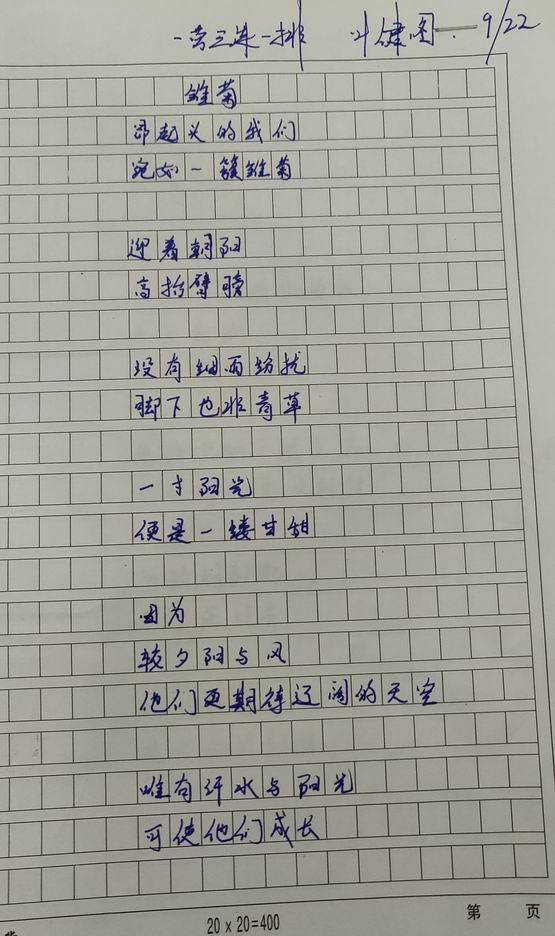 一营三连一排 叶健图 9/22
雏菊
昂起头的我们
宛如一簇雏菊
迎着朝阳
高抬臂膀
没有细雨纷扰
脚下也非青草
一寸阳光
便是一缕甘甜
因为
较夕阳与风
他们更期待辽阔的天空
唯有汗水与阳光
可使他们成长
20×20=400
第 页